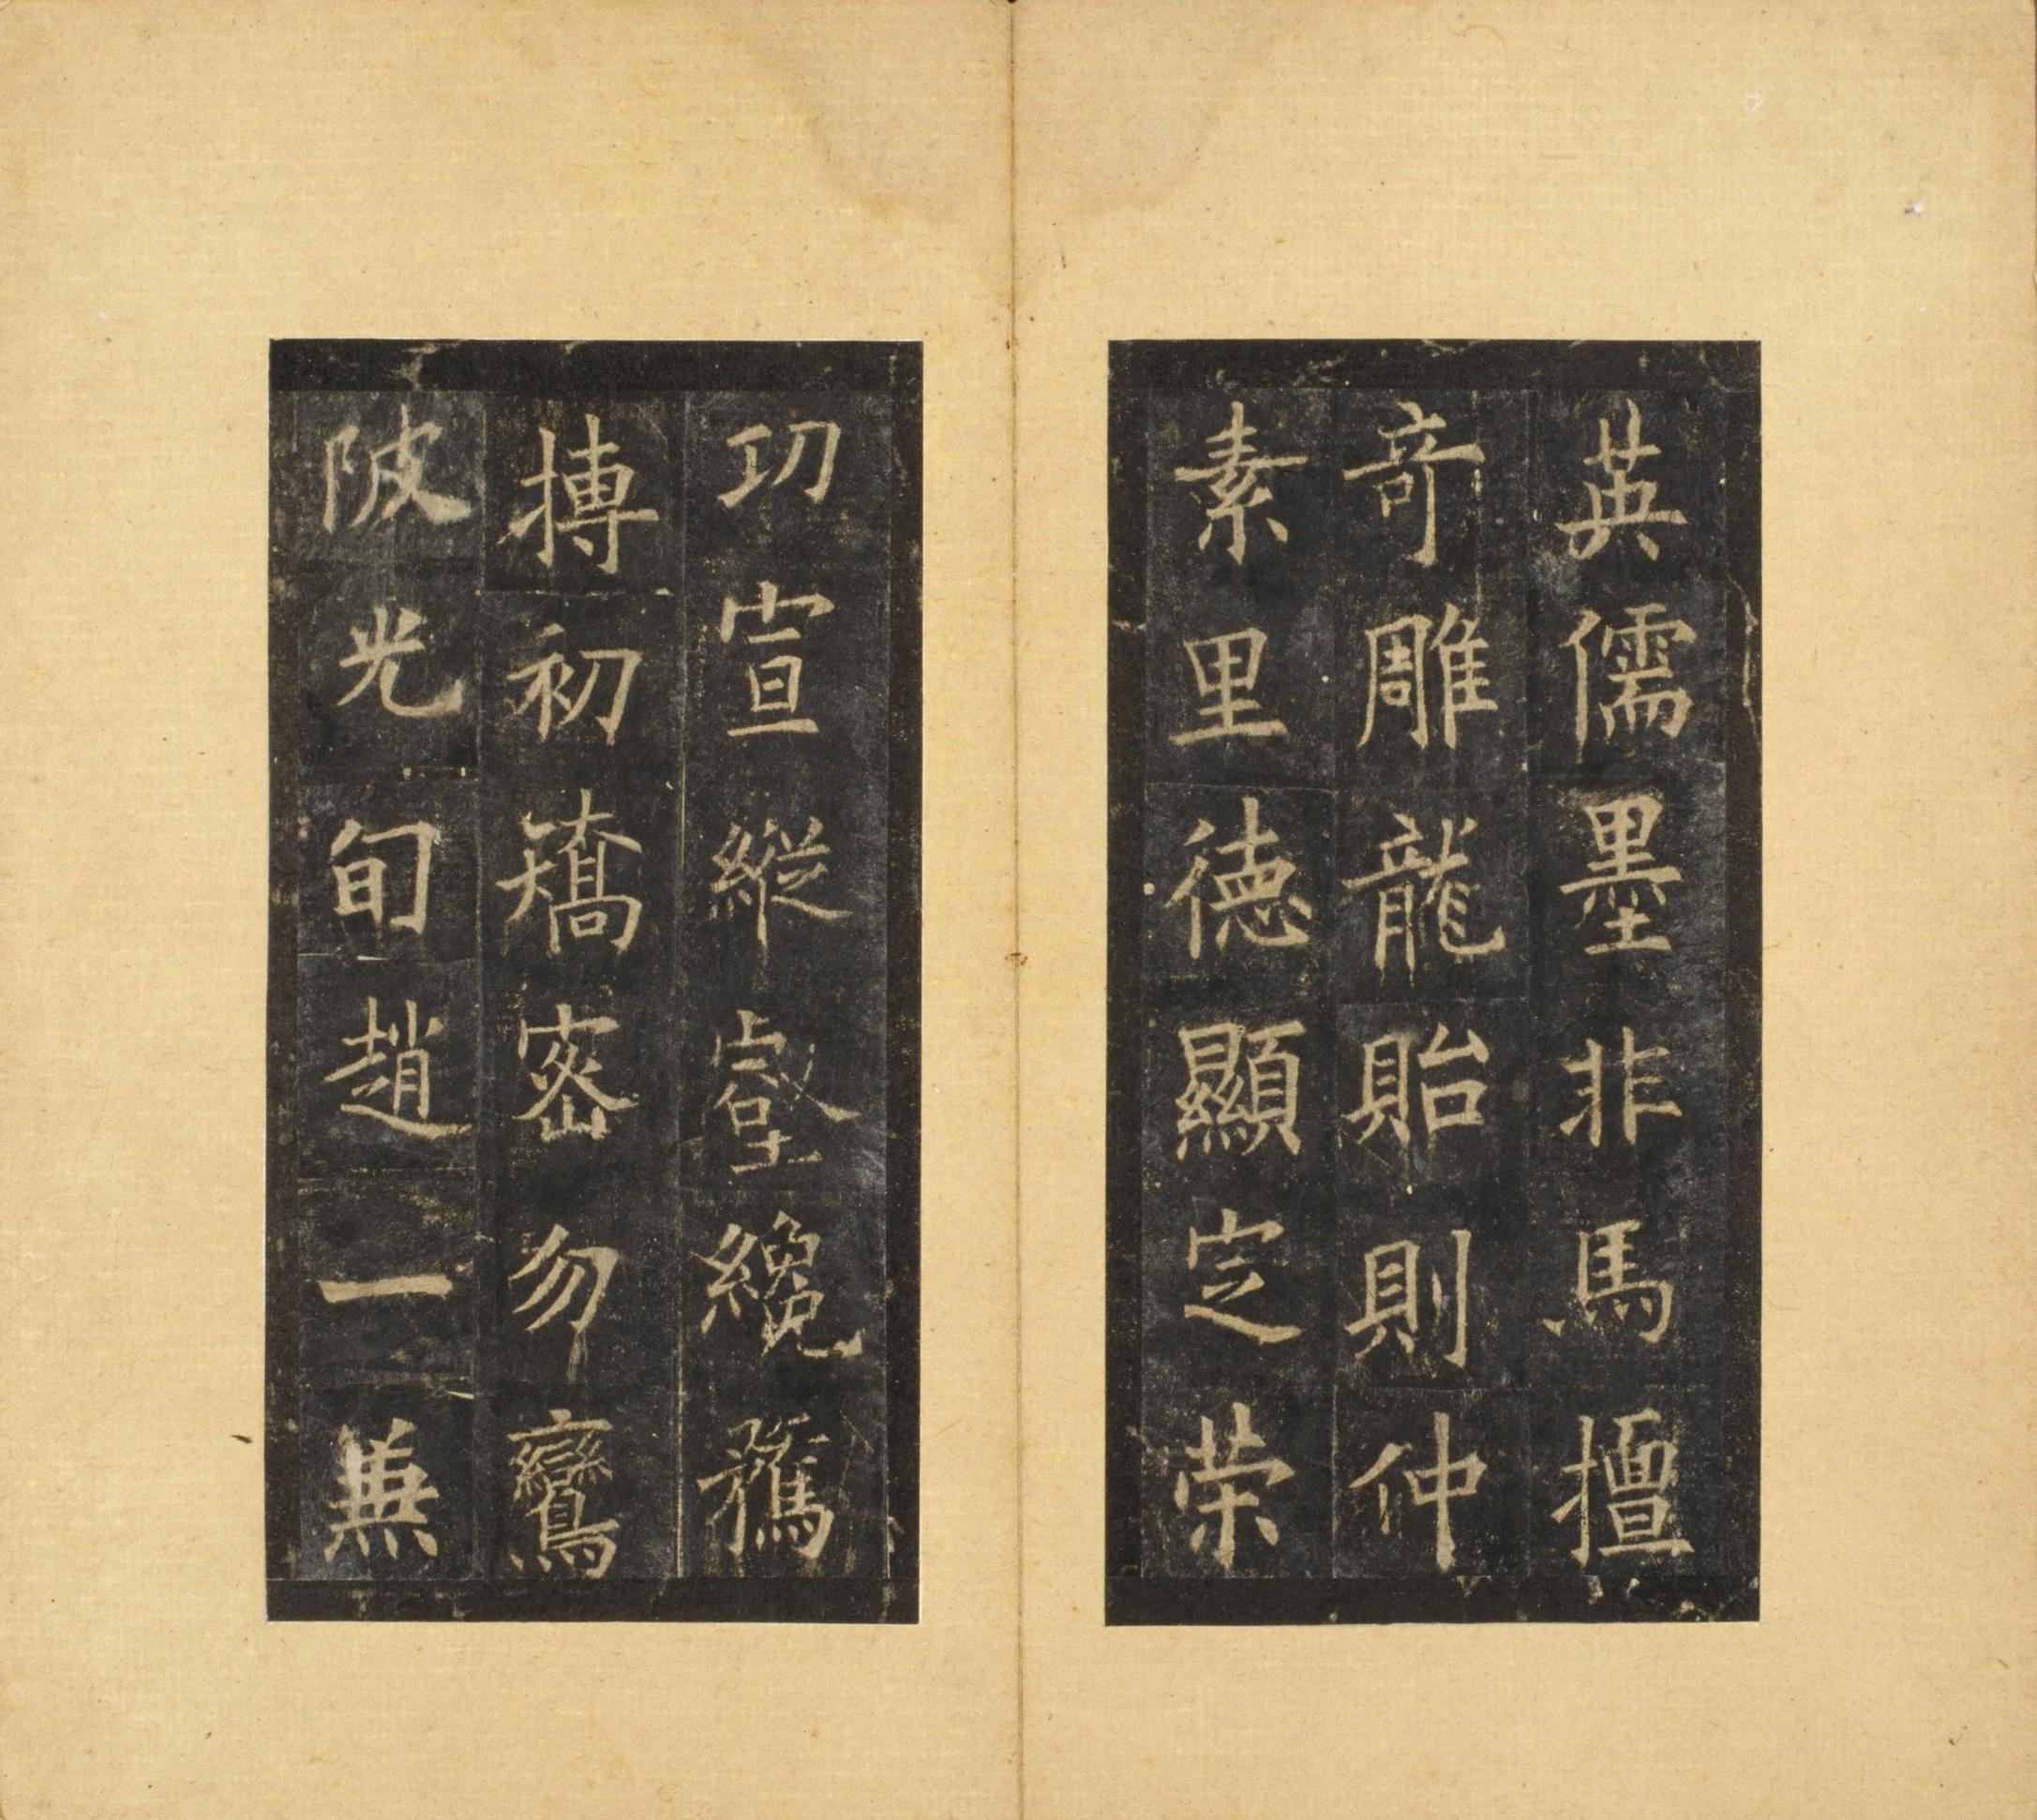 英儒墨非馬擅
奇雕龍貽則仲
素里德顯定榮
功宣縱壑纔鶱
搏初矯密勿鸞
陂光旬趙一兼